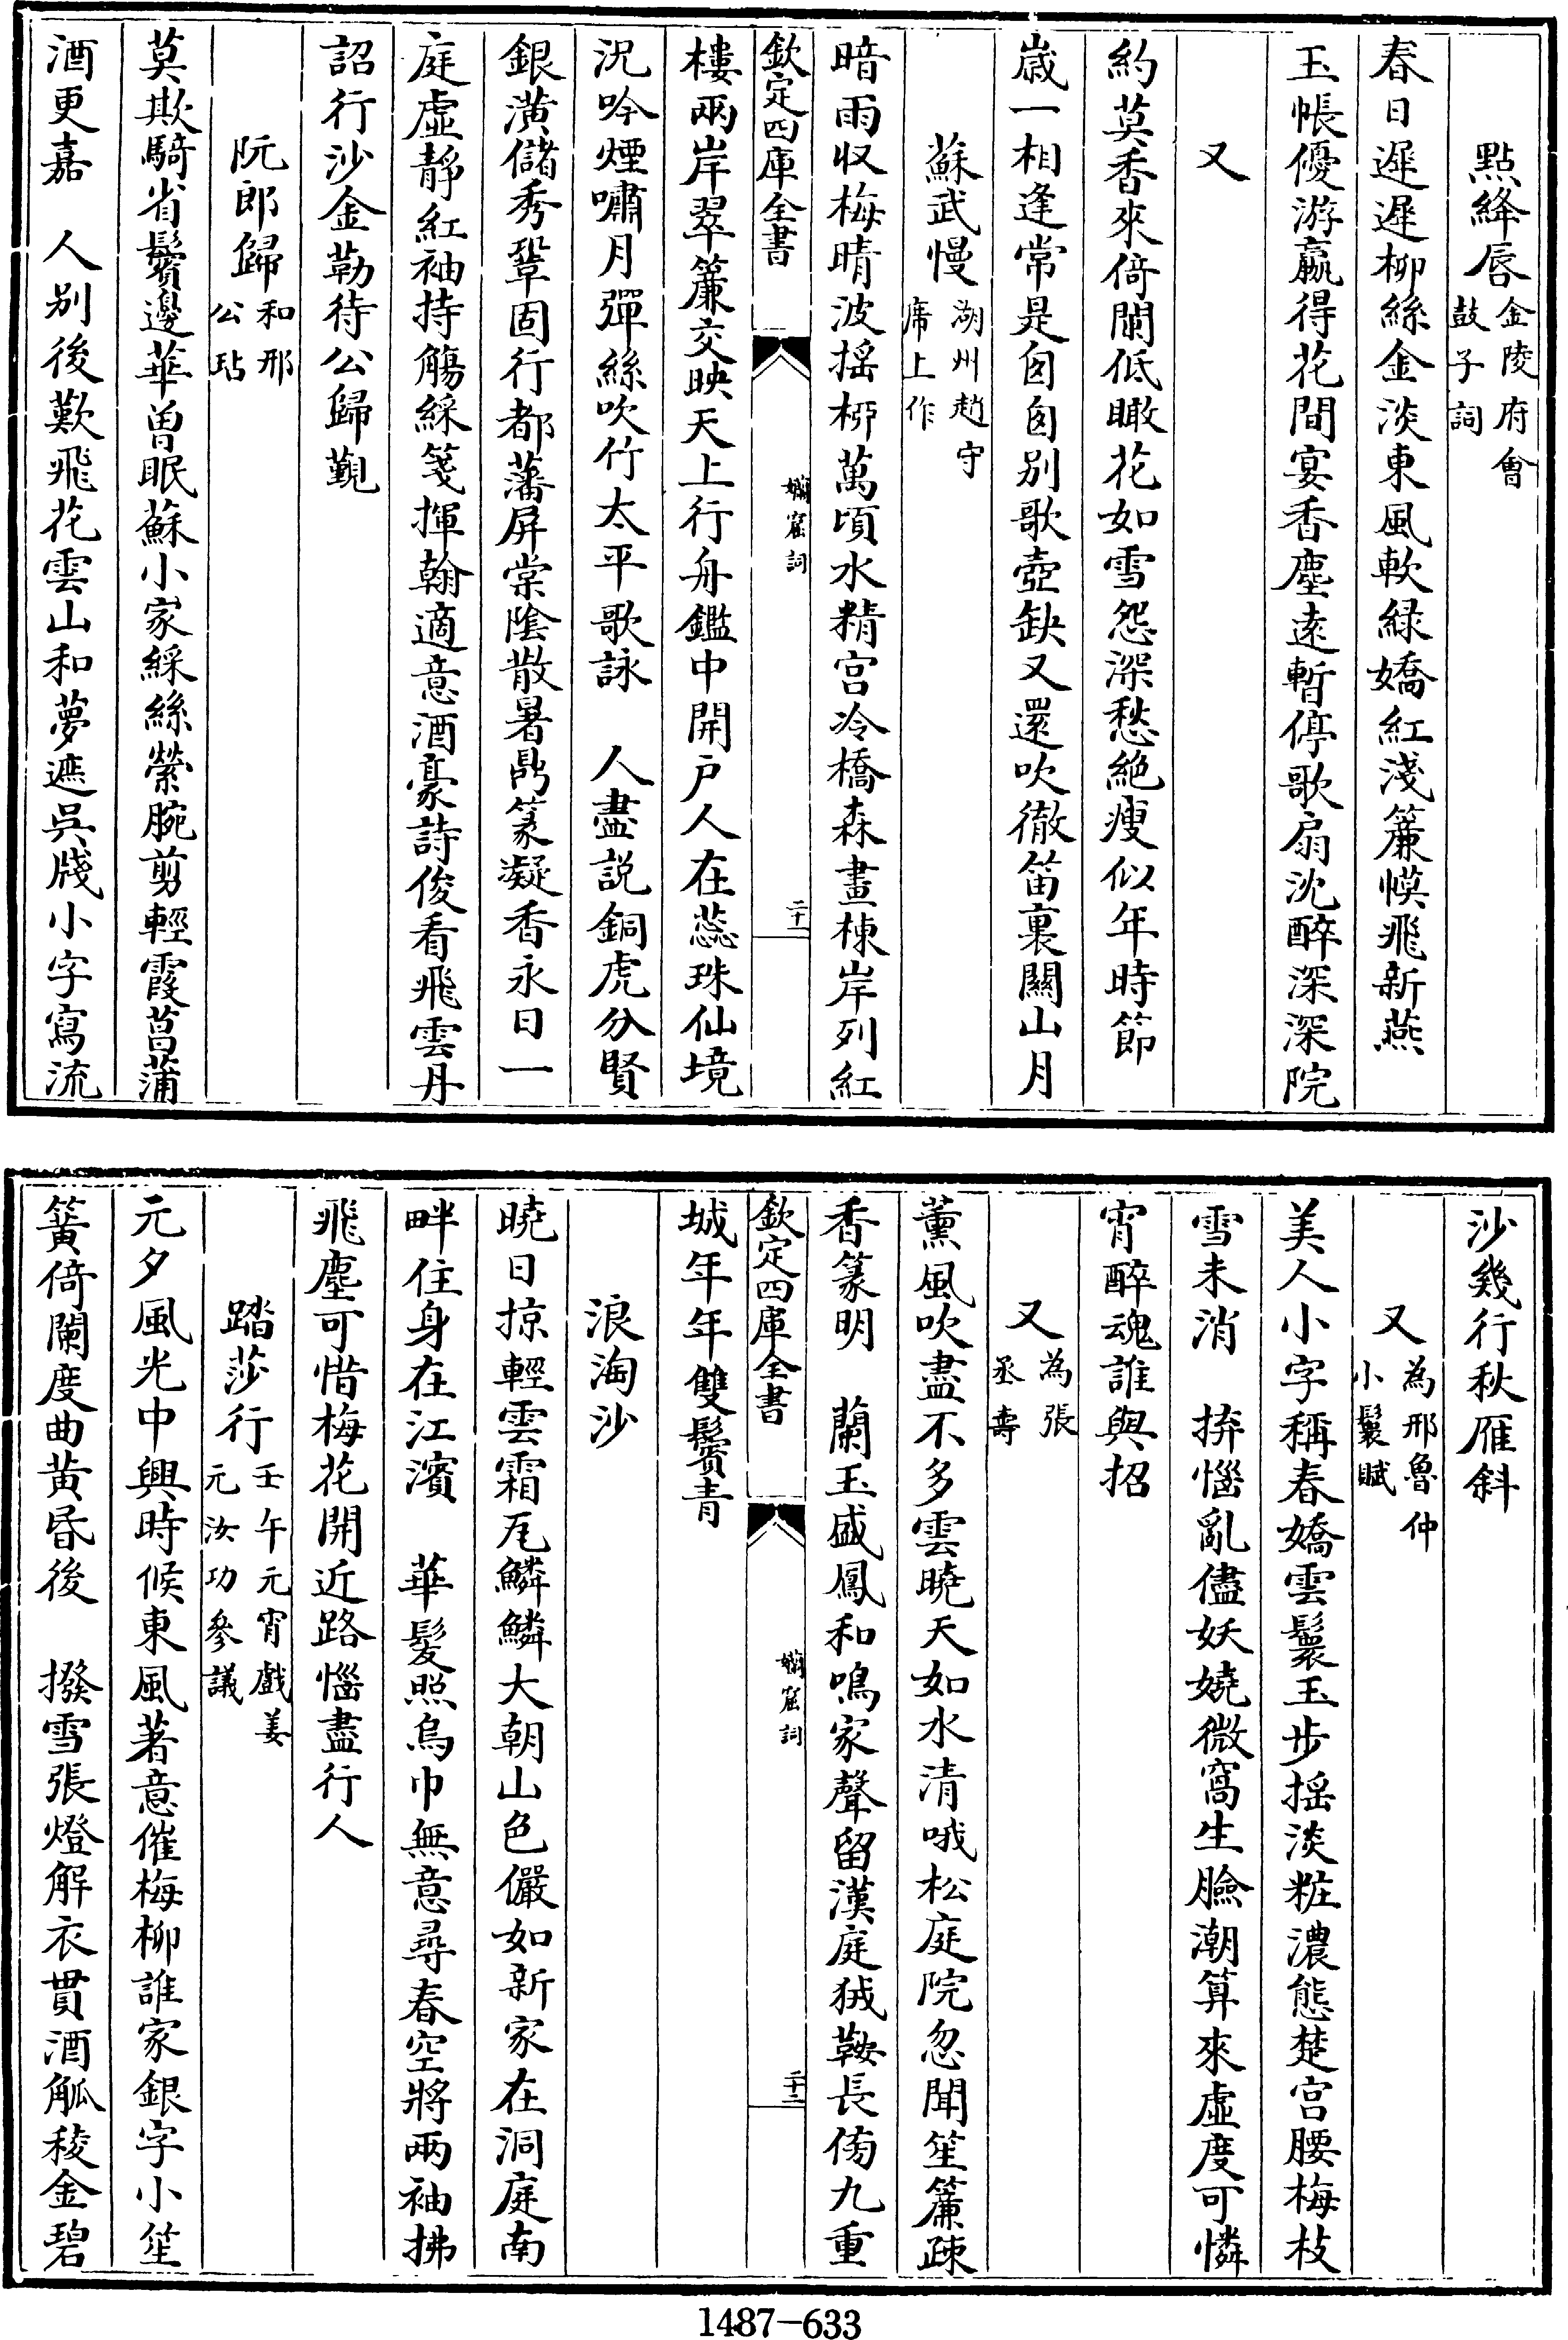 點絳唇金陵府會鼓子詞
春日遲遲柳絲金淡東風軟緑嬌紅淺簾幙飛新燕
玉帳優游贏得花間宴香塵逺暫停歌扇沈醉深深院
又
約莫香來倚闌低瞰花如雪怨深愁絶瘦似年時節
歲一相逢常是匆匆别歌壺缺又還吹徹笛裏關山月
蘇武慢湖州趙守席上作
暗雨収梅晴波揺桺萬頃水精宫冷橋森畫棟岸列紅
欽定四庫全書
嬾窟詞
二十一
樓兩岸翠簾交映天上行舟鑑中開户人在蕊珠仙境
况吟煙嘯月彈絲吹竹太平歌詠　人盡説銅虎分賢
銀潢儲秀鞏固行都藩屏棠陰散暑鼎篆凝香永日一
庭虚靜紅袖持觴綵箋揮翰適意酒豪詩俊看飛雲丹
詔行沙金勒待公歸覲
阮郎歸和邢公玷
莫欺騎省鬢邊華曽眠蘇小家綵絲縈腕剪輕霞菖蒲
酒更嘉　人别後歎飛花雲山和夢遮吳牋小字寫流
沙幾行秋雁斜
又為邢魯仲小鬟賦
美人小字稱春嬌雲鬟玉步揺淡粧濃態楚宫腰梅枝
雪未消　拚惱亂儘妖嬈微窩生臉潮算來虚度可憐
宵醉魂誰與招
又為張丞壽
薫風吹盡不多雲曉天如水清哦松庭院忽聞笙簾疎
香篆明　蘭玉盛鳳和鳴家聲留漢庭狨鞍長傍九重
欽定四庫全書
嬾窟詞
二十二
城年年雙鬢青
浪淘沙
曉日掠輕雲霜瓦鱗鱗大朝山色儼如新家在洞庭南
畔住身在江濱　華髪照烏巾無意尋春空將兩袖拂
飛塵可惜梅花開近路惱盡行人
踏莎行壬午元宵戲姜元汝功參議
元夕風光中興時候東風著意催梅柳誰家銀字小笙
簧倚闌度曲黄昏後　撥雪張燈解衣貰酒觚稜金碧
1487-633